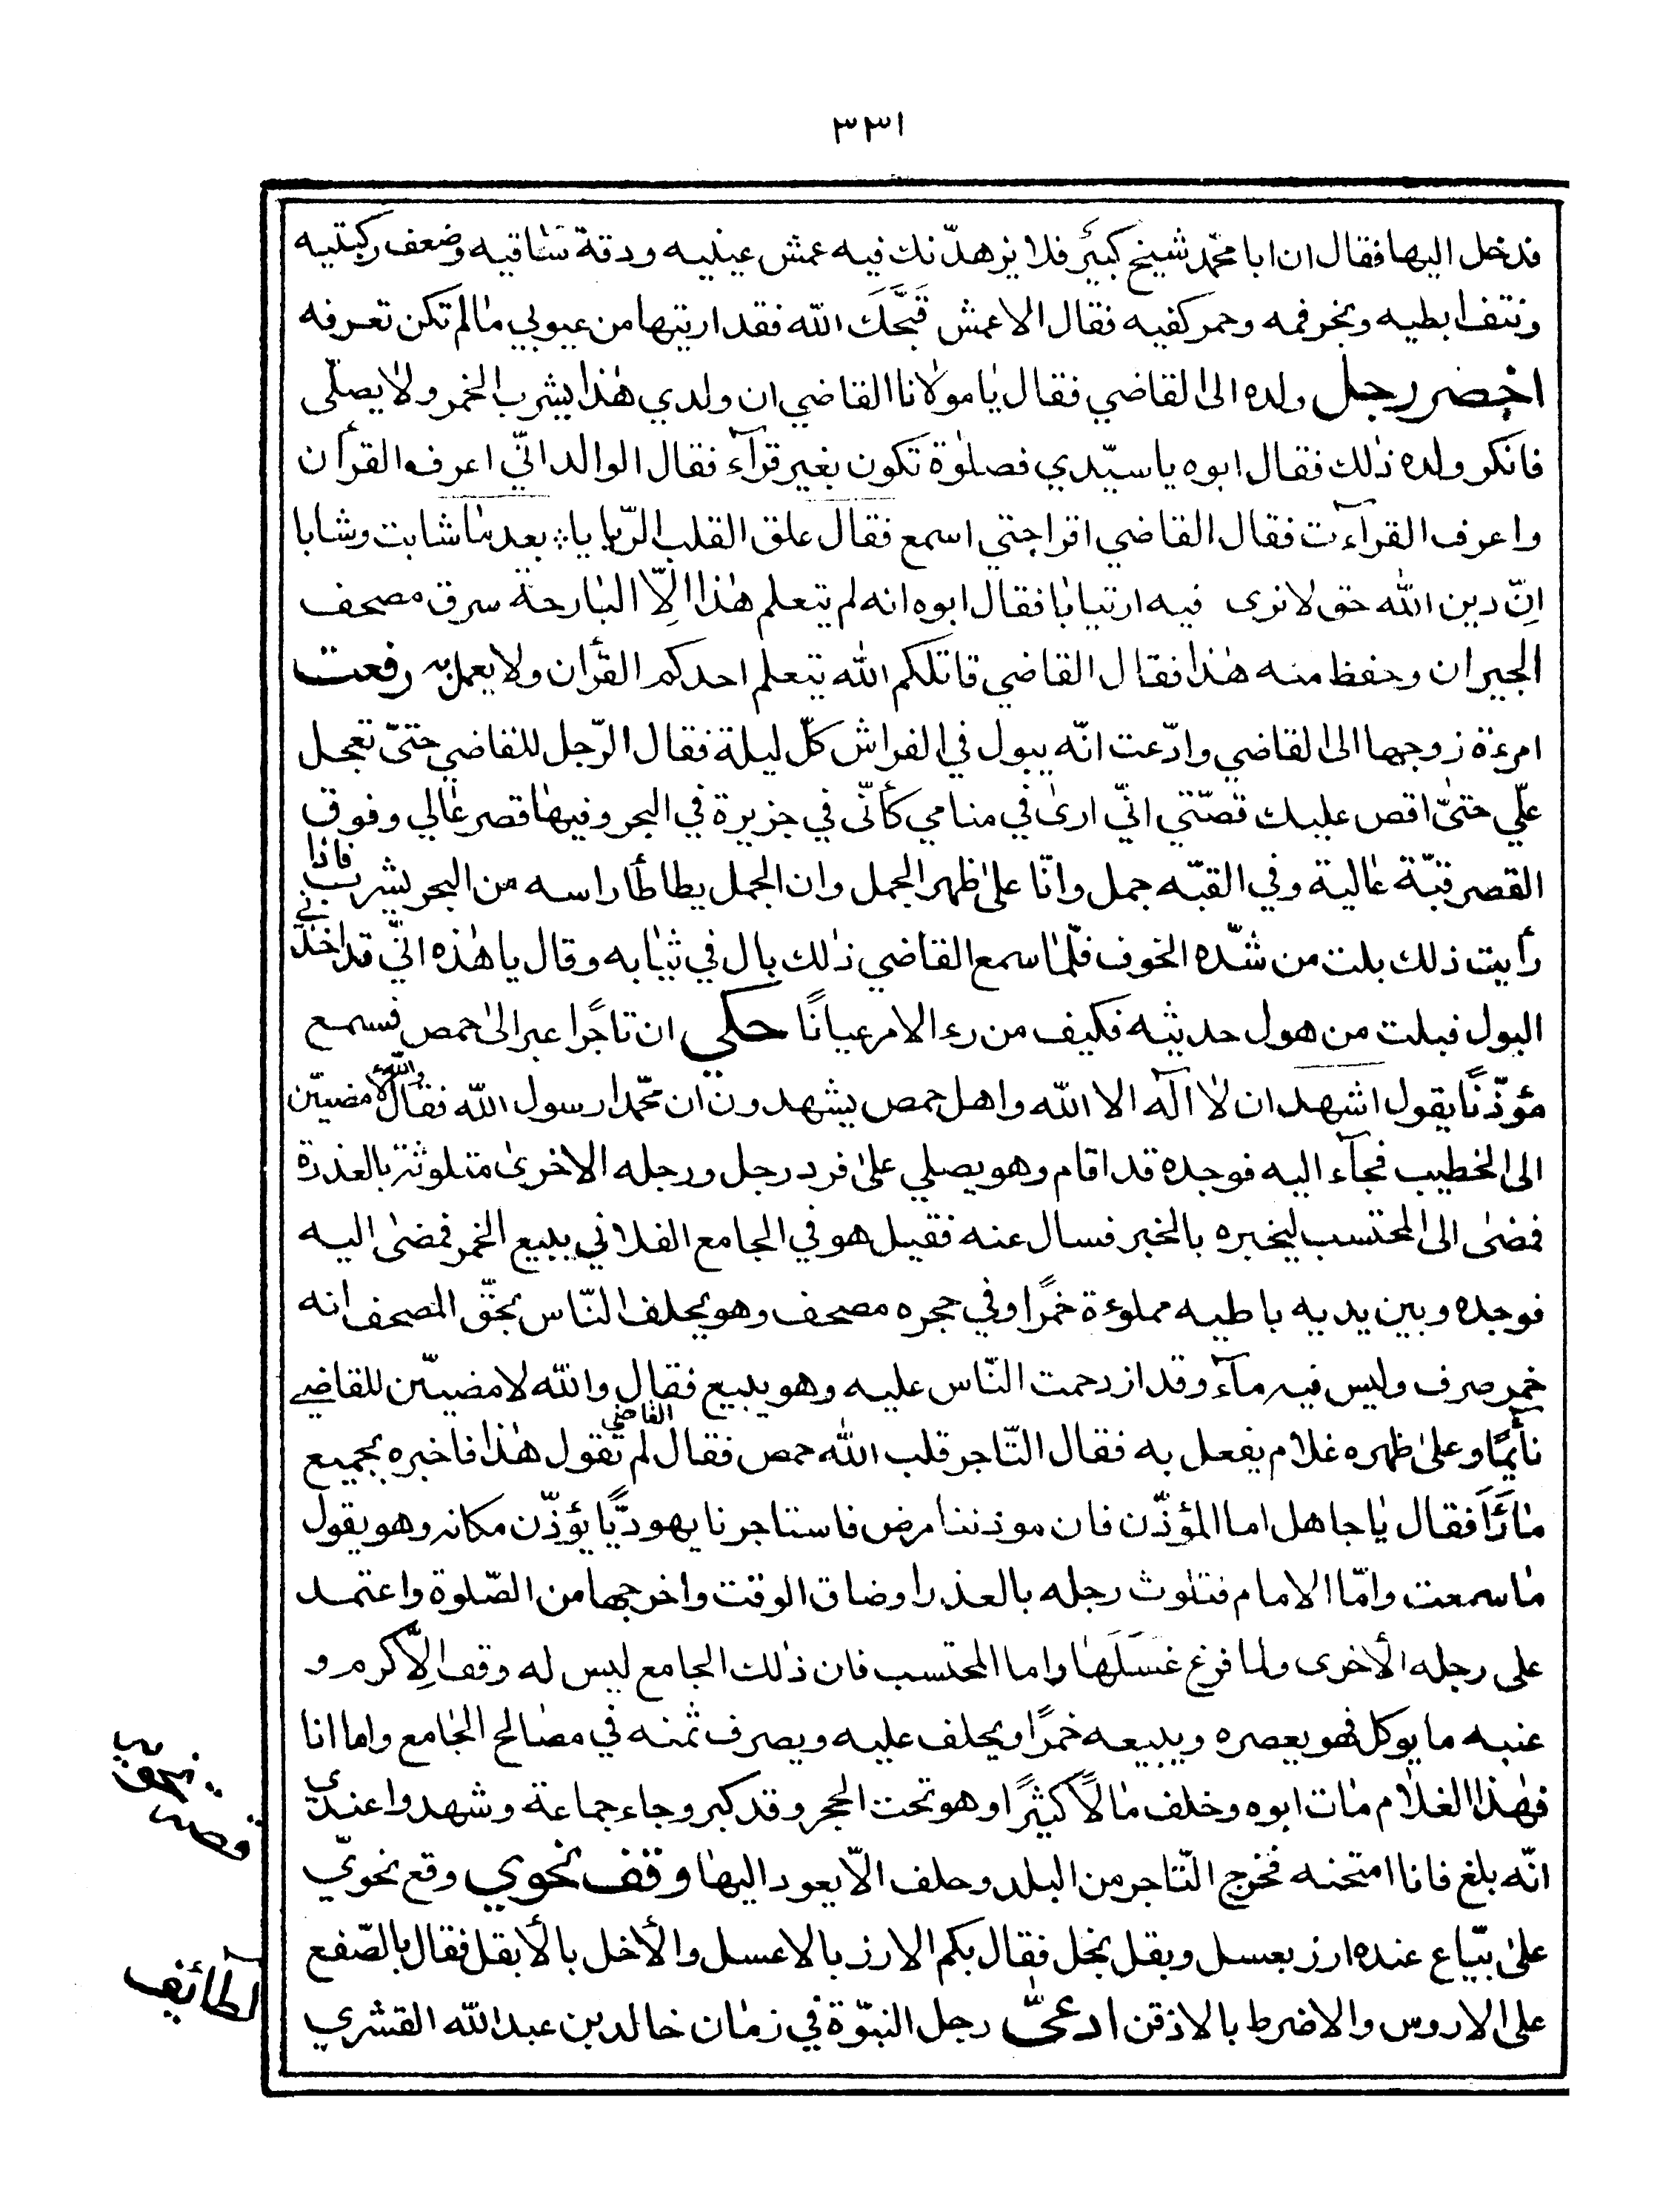 ٣٣١
فدخل اليها فقال ان ابا محمّد شيخ كبير فلا يزهدّنك فيه عمش عينيه ودقة سٰاقيه وضعف ركبتيه
ونتف ابطيه وبخر فمه وحمر كفيه فقال الاعمش قَبَّحَكَ اللّٰه فقد اريتها من عيوبي مٰا لم تكن تعرفه
احضر رجل ولده الى القاضي فقال يٰا مولانا القاضي ان ولدي هٰذا يشرب الخمر ولا يصلّى
فانكر ولده ذٰلك فقال ابوه يا سيّدي فصلوٰة تكون بغير قرآء فقال الوالد انّي اعرف القرأن
واعرف القرآءت فقال القاضي اقرا حتي اسمع فقال علق القلب الرّبايا ؞ بعد مٰا شابت وشابا
اِنّ دين اللّٰه حق لا نرى فيه ارتيابٰا فقال ابوه انه لم يتعلم هٰذا الاّ البٰارحة سرق مصحف
الجيران وحفظ منه هٰذا فقال القاضي قاتلكم اللّٰه يتعلم احدكم القرأن ولا يعمل به رفعت
امرءة زوجها الى القاضي وادّعت انّه يبول في الفراش كلّ ليلة فقال الرّجل للقاضي حتىّ تعجل
علّي حتىّ اقص عليك قصّتي انّي ارىٰ في منامي كأنّى في جزيرة في البحر وفيهٰا قصر عٰالي وفوق
القصر قبّة عٰالية وفي القبّه جمل وانّا علىٰ ظهر الجمل وان الجمل يطاطأ راسه من البحر يشرب فاذا
رأيت ذلك بلت من شدّه الخوف فلّمٰا سمع القاضي ذٰلك بال في ثيٰابه وقال يا هٰذه انّي قد اخذني
البول فبلت من هول حديثه فكيف من رء الامر عيانًا حكي ان تاجًرا عبر الىٰ حمص فسمع
مؤذّنًا يقول اشهد ان لاٰ آله الا اللّٰه واهل حمص يشهدون ان محمّدا رسول اللّٰه فقال واللّٰه لأمضينّ
الى الخطيب فجآء اليه فوجده قد اقام وهو يصلي علىٰ فرد رجل ورجله الاخرىٰ متلوثة بالعذرة
فمضىٰ الى المحتسب ليخبره بالخبر فسال عنه فقيل هو في الجامع الفلاني يبيع الخمر فمضىٰ اليه
فوجده وبين يديه باطيه مملوءة خمرًا وفي حجره مصحف وهو يحلف النّاس بحقّ المصحف انه
خمر صرف وليس فيه مآء وقد ازدحمت النّاس عليه وهو يبيع فقال واللّٰه لامضينّ للقاضي
نآئمًا وعلىٰ ظهره غلام يفعل به فقال التّاجر قلب اللّٰه حمص فقال القاضي لم تقول هٰذا فاخبره بجميع
مٰا رَأَ فقال يٰا جاهل اما المؤذّن فان موذننا مرض فاستاجرنا يهوديًّا يؤذّن مكانه وهو يقول
مٰا سمعت وامّا الامام فتلوث رجله بالعذرا وضاق الوقت واخرجها من الصّلوة واعتمد
على رجله الأخرى ولما فرغ غسَلَهٰا واما المحتسب فان ذٰلك الجامع ليس له وقف اِلاّ كرم و
عنبه ما يوكل فهو يعصره ويبيعه خمرًا ويحلف عليه ويصرف ثمنه في مصٰالح الجٰامع واما انا
فهٰذا الغلاٰم مٰات ابوه وخلف مٰالاً كثيرًا وهو تحت الحجر وقد كبر وجاء جماعة وشهدوا عندي
انّه بلغ فانا امتحنه فخرج التّاجر من البلد وحلف الاّ يعود اليهٰا وقف نحوي وقع نحويّ
علىٰ بيّاع عنده ارز بعسل وبقل بخل فقال بكم الارز بالاعسل والأخل بالأبقل فقال بالصّفع
على الاروس والاضرط بالاذقن ادعىّٰ رجل النبّوة في زمٰان خالد بن عبد اللّٰه القشري
قصه
لطائف